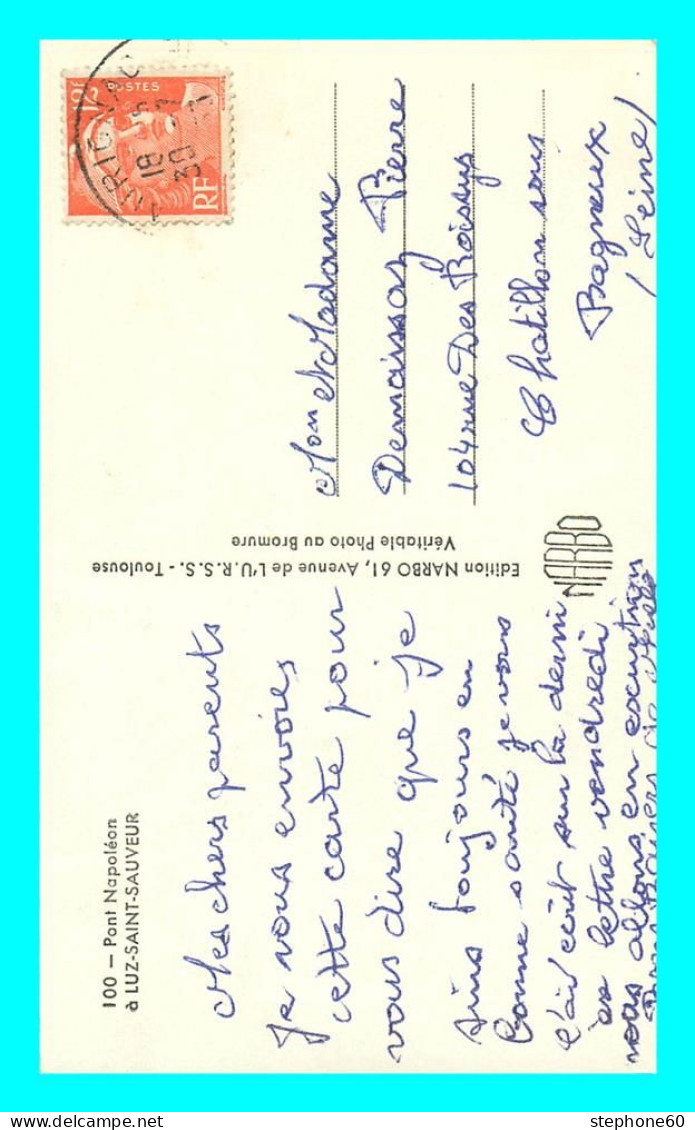 100 — Pont Napoléon
à LUZ-SAINT-SAUVEUR
Mes chers parents
Je vous envoies
cette carte pour
vous dire que je
suis toujours en
bonne santé je vous
l'ai écrit sur la derni
es lettre vendredi
nous allons en excurtion
Bons Baisers de
Edition NARBO 61, Avenue de L'U.R.S.S. - Toulouse
Véritable Photo au Bromure
NARBO
POSTES
RF
18
30
Mon et Madame
Demaison Pierre
104 rue Des Roissys
Chatillon sous
Bagneux
(Seine)
stephone60